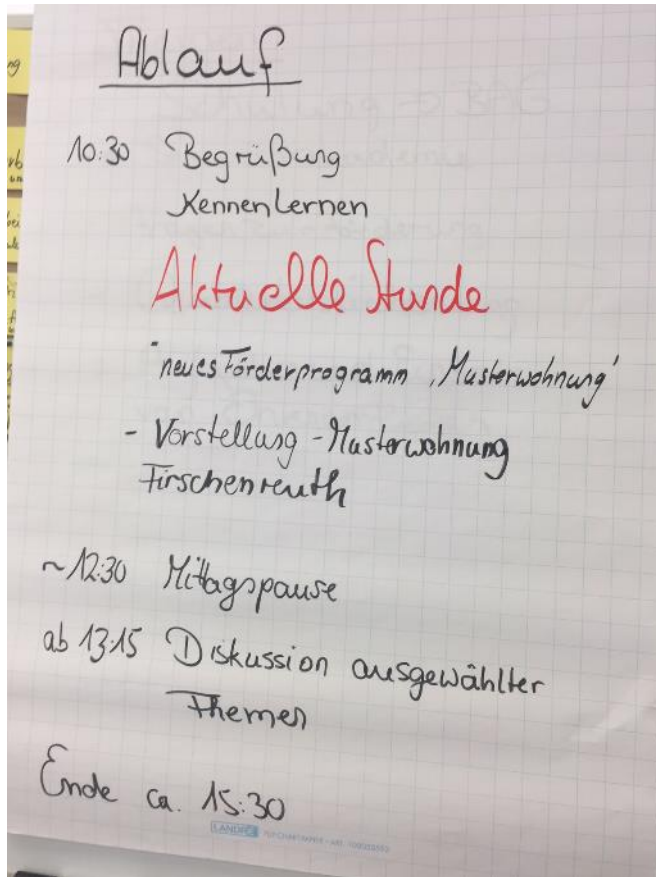 Ablauf
10:30 Begrüßung
Kennenlernen
Aktuelle Stunde
- neues Förderprogramm ‚Musterwohnung'
- Vorstellung - Musterwohnung
Tirschenreuth
~12:30 Mittagspause
ab 13:15 Diskussion ausgewählter
Themen
Ende ca. 15:30
LANDRÉ